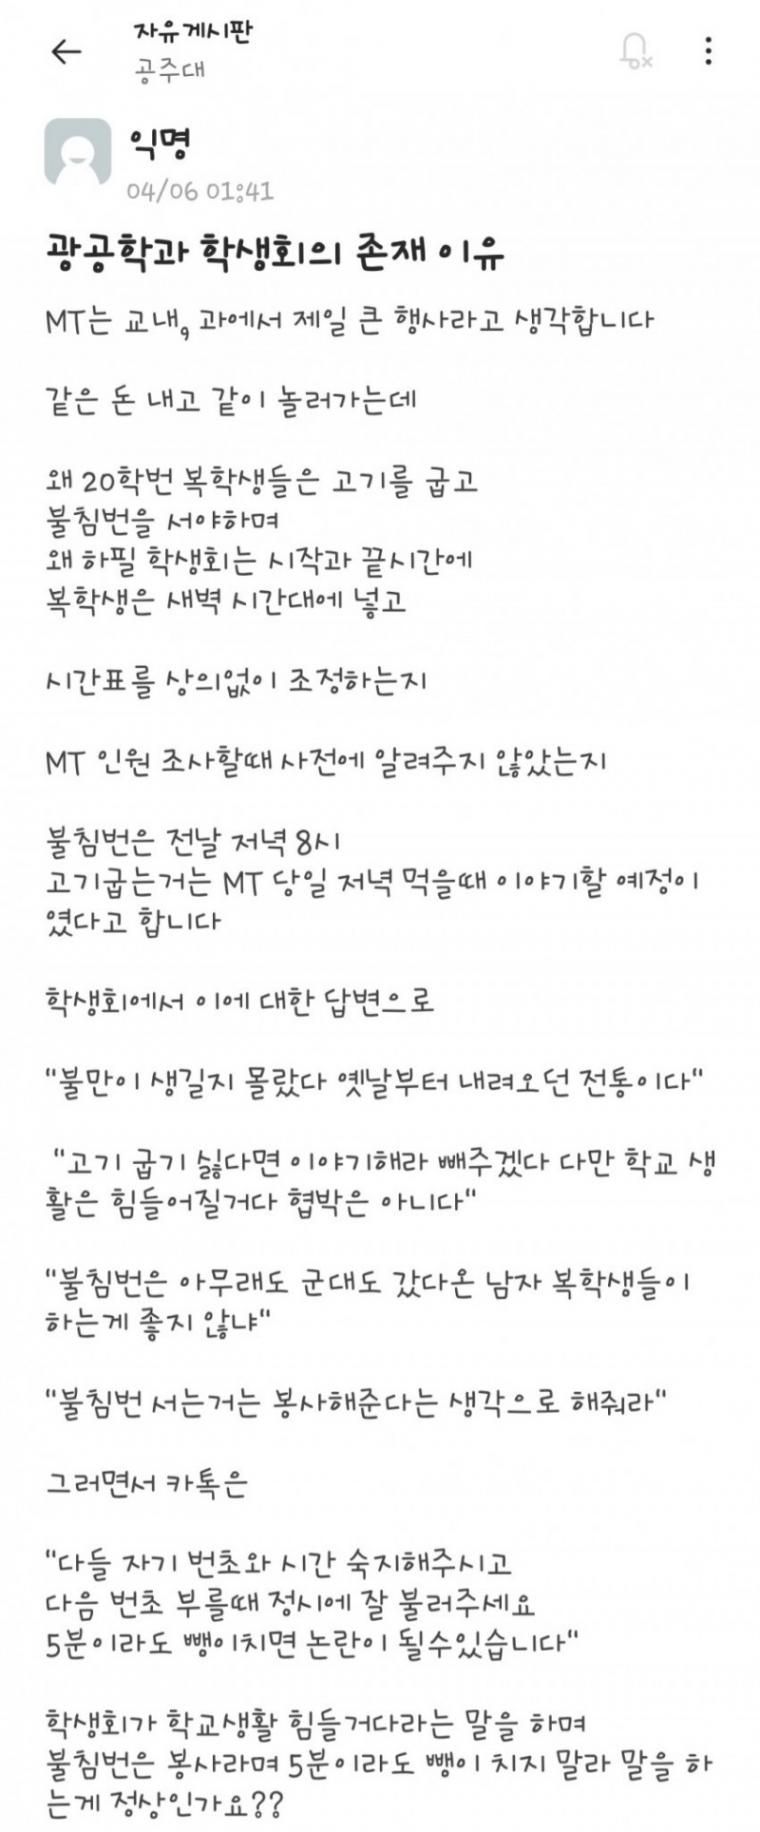 자유게시판
공주대
익명
04/06 01:41
광공학과 학생회의 존재 이유
MT는 교내, 과에서 제일 큰 행사라고 생각합니다
같은 돈 내고 같이 놀러가는데
왜 20학번 복학생들은 고기를 굽고
불침번을 서야하며
왜 하필 학생회는 시작과 끝시간에
복학생은 새벽 시간대에 넣고
시간표를 상의없이 조정하는지
MT 인원 조사할때 사전에 알려주지 않았는지
불침번은 전날 저녁 8시
고기굽는거는 MT 당일 저녁 먹을때 이야기할 예정이
였다고 합니다
학생회에서 이에 대한 답변으로
"불만이 생길지 몰랐다 옛날부터 내려오던 전통이다"
"고기 굽기 싫다면 이야기해라 빼주겠다 다만 학교 생
활은 힘들어질거다 협박은 아니다"
"불침번은 아무래도 군대도 갔다온 남자 복학생들이
하는게 좋지 않냐"
"불침번 서는거는 봉사해준다는 생각으로 해줘라"
그러면서 카톡은
"다들 자기 번초와 시간 숙지해주시고
다음 번초 부를때 정시에 잘 불러주세요
5분이라도 뺑이치면 논란이 될수있습니다"
학생회가 학교생활 힘들거다라는 말을 하며
불침번은 봉사라며 5분이라도 뺑이 치지 말라 말을 하
는게 정상인가요??